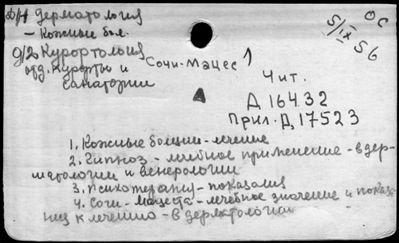 д/н Дерматология
ОС
5/IX 56
– Кожные бол.
д/2 Курортология
отд. Курорты и
санатории
Сочи-Мацес
Чит.
Д 16432
Прил. Д, 17523
1. Кожные болезни – лечение
2. Гипноз – лечебное применение – в дер-
матологии и венерологии
3. Психотерапия – показания
4. Сочи – Мацеста – лечебное значение и показ.
ния к лечению – в дерматологии